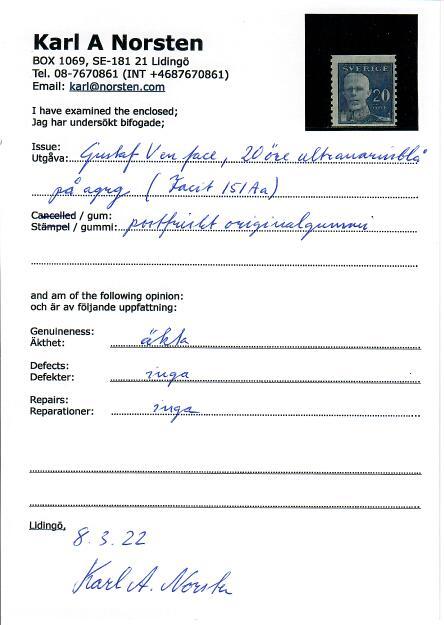 Karl A Norsten
BOX 1069, SE-181 21 Lidingö
Tel. 08-7670861 (INT +4687670861)
Email: karl@norsten.com
SVERIGE
20
I have examined the enclosed;
Jag har undersökt bifogade;
Issue:
Utgåva: Gustaf V en face, 20 öre ultramarinblå
på agrg (Facit 151Aa)
Cancelled / gum:
Stämpel / gummi: postfriskt originalgummi
and am of the following opinion:
och är av följande uppfattning:
Genuineness:
Äkthet: äkta
Defects:
Defekter: inga
Repairs:
Reparationer: inga
Lidingö,
8.3.22
Karl A. Norsten